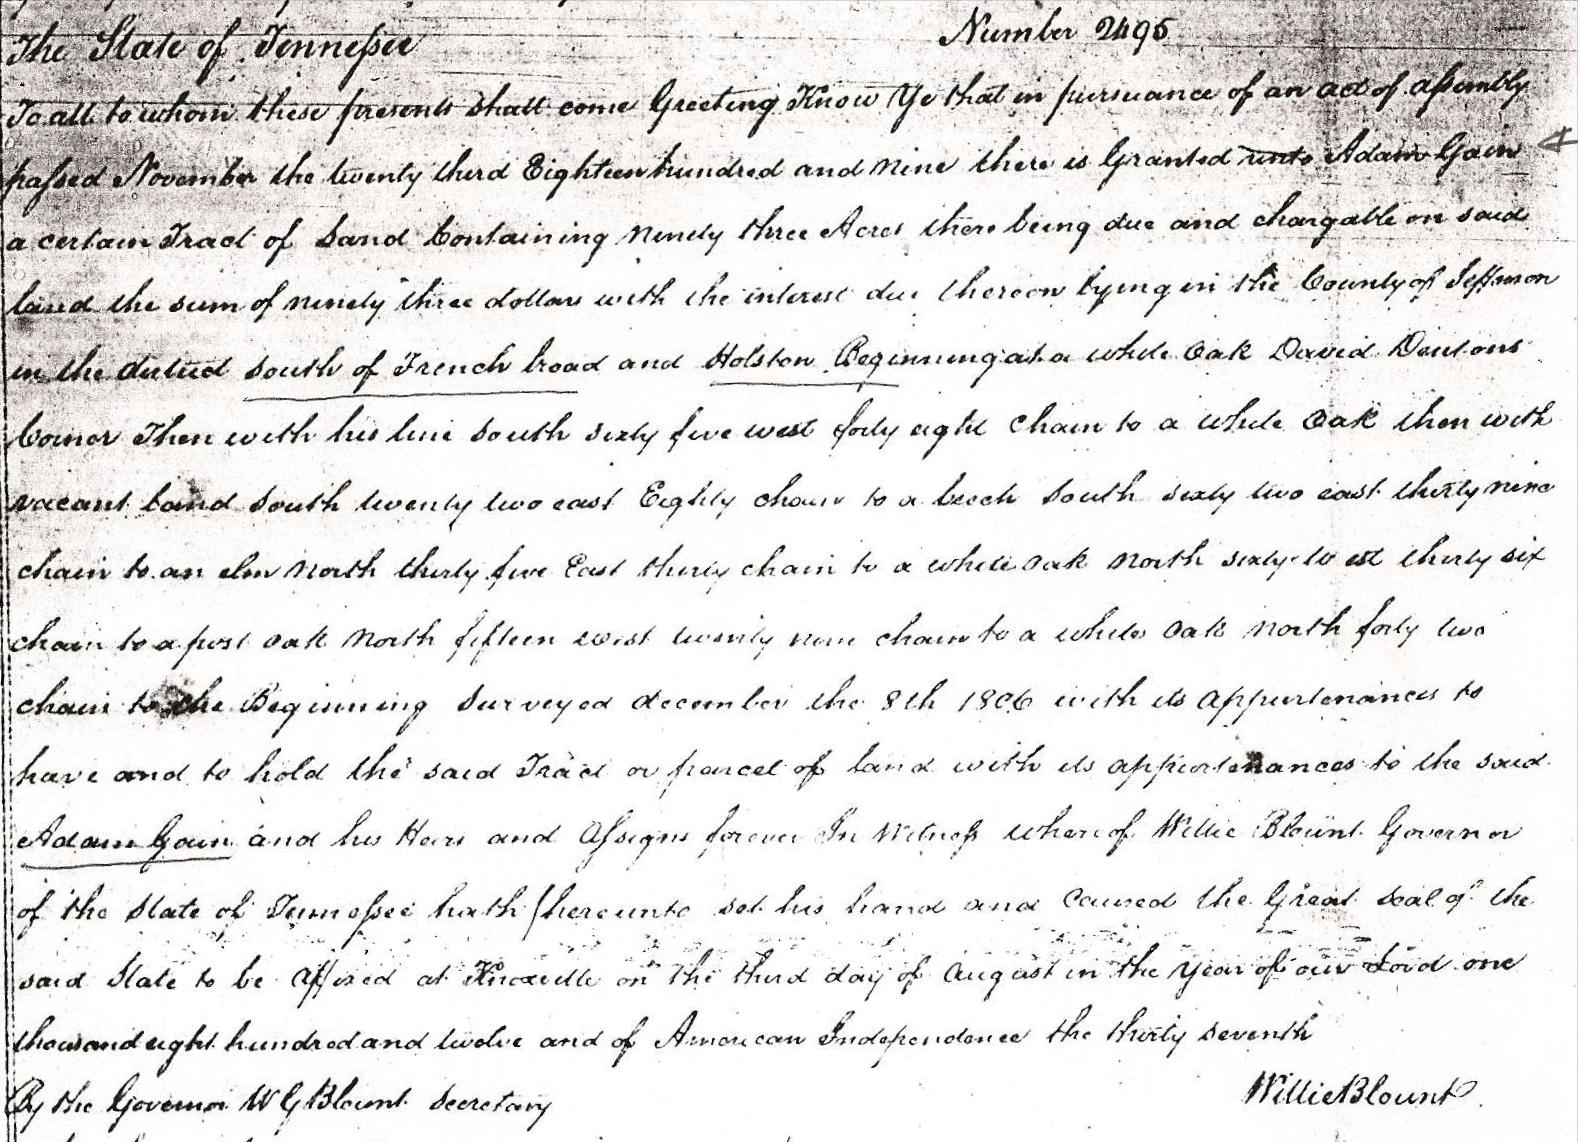 The State of Tennessee Number 2495
To all to whom these presents shall come Greeting Know Ye that in pursuance of an act of assembly
passed November the twenty third Eighteen hundred and nine there is Granted unto Adam Gain
a certain Tract of Land Containing ninety three Acres there being due and chargable on said
land the sum of ninety three dollars with the interest due thereon lying in the County of Jefferson
in the district south of French broad and Holston Beginning at a white oak David Dentons
Corner Then with his line south sixty five west forty eight chain to a white Oak then with
vacant land South twenty two east Eighty chain to a beech South sixty two east thirty nine
chain to an elm North thirty five East thirty chain to a white oak North sixty west thirty six
chain to a post oak North fifteen west twenty nine chain to a white oak North forty two
chain to the Beginning Surveyed december the 8th 1806 with its appurtenances to
have and to hold the said Tract or parcel of land with its appurtenances to the said
Adam Gain and his Heirs and Assigns forever In Witness whereof Willie Blount Governor
of the State of Tennessee hath hereunto set his hand and caused the Great seal of the
said State to be affixed at Knoxville on the third day of august in the Year of our Lord one
thousand eight hundred and twelve and of American Independence the thirty seventh
By the Governor W G Blount Secretary Willie Blount